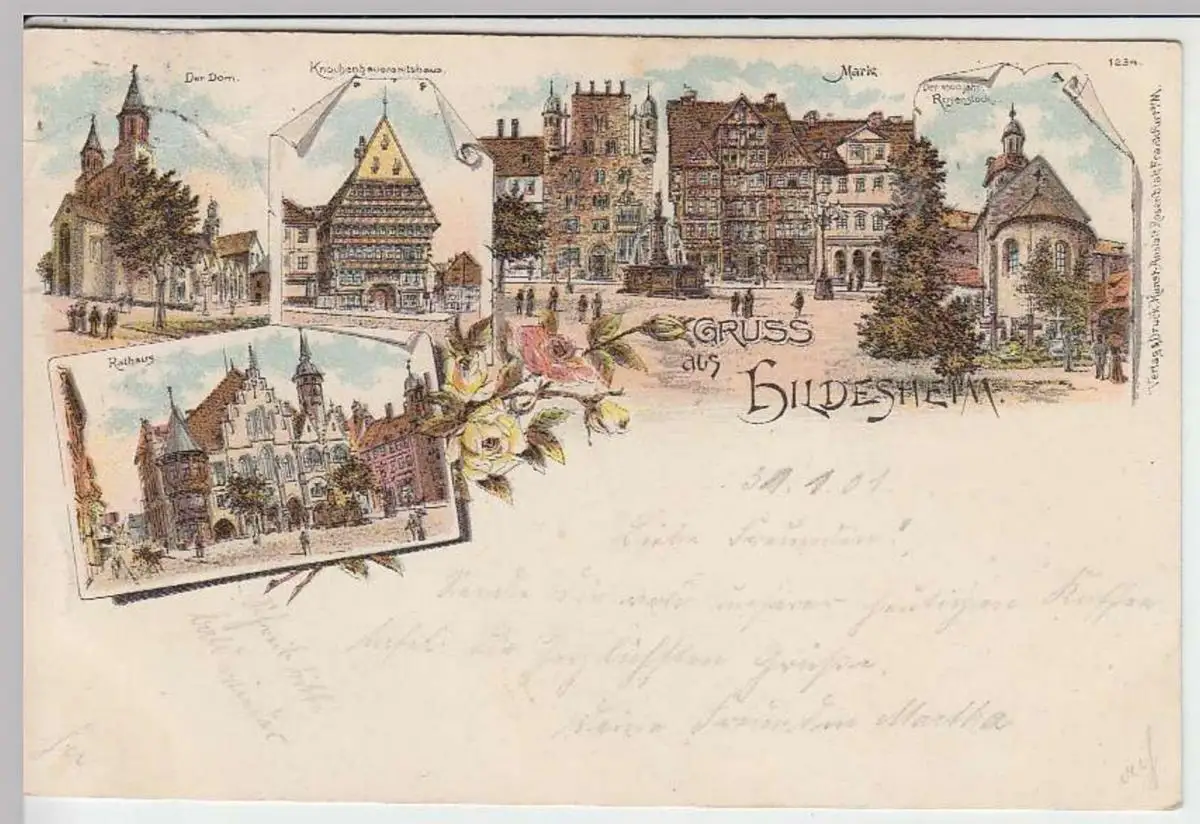 Der Dom.
Knochenhaueramtshaus.
Markt
Der 1000 jähr.
Rosenstock.
1234.
Verlag & Druck, Kunst-Anstalt Rosenblatt, Frankfurt a/M.
Rathaus
GRUSS
aus
HILDESHEIM.
31.1.01.
Liebe Freundin!
Sende dir von unserer heutigen Kaffee
tafel die herzlichsten Grüße.
Deine Freundin Martha
Schreib bitte
bald wieder